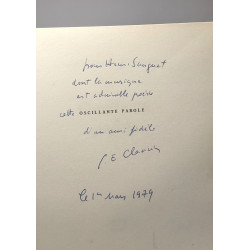 pour Henri Sauguet
dont la musique
est admirable poésie
cette OSCILLANTE PAROLE
d'un ami fidèle
P E Clancier
le 1er Mars 1979